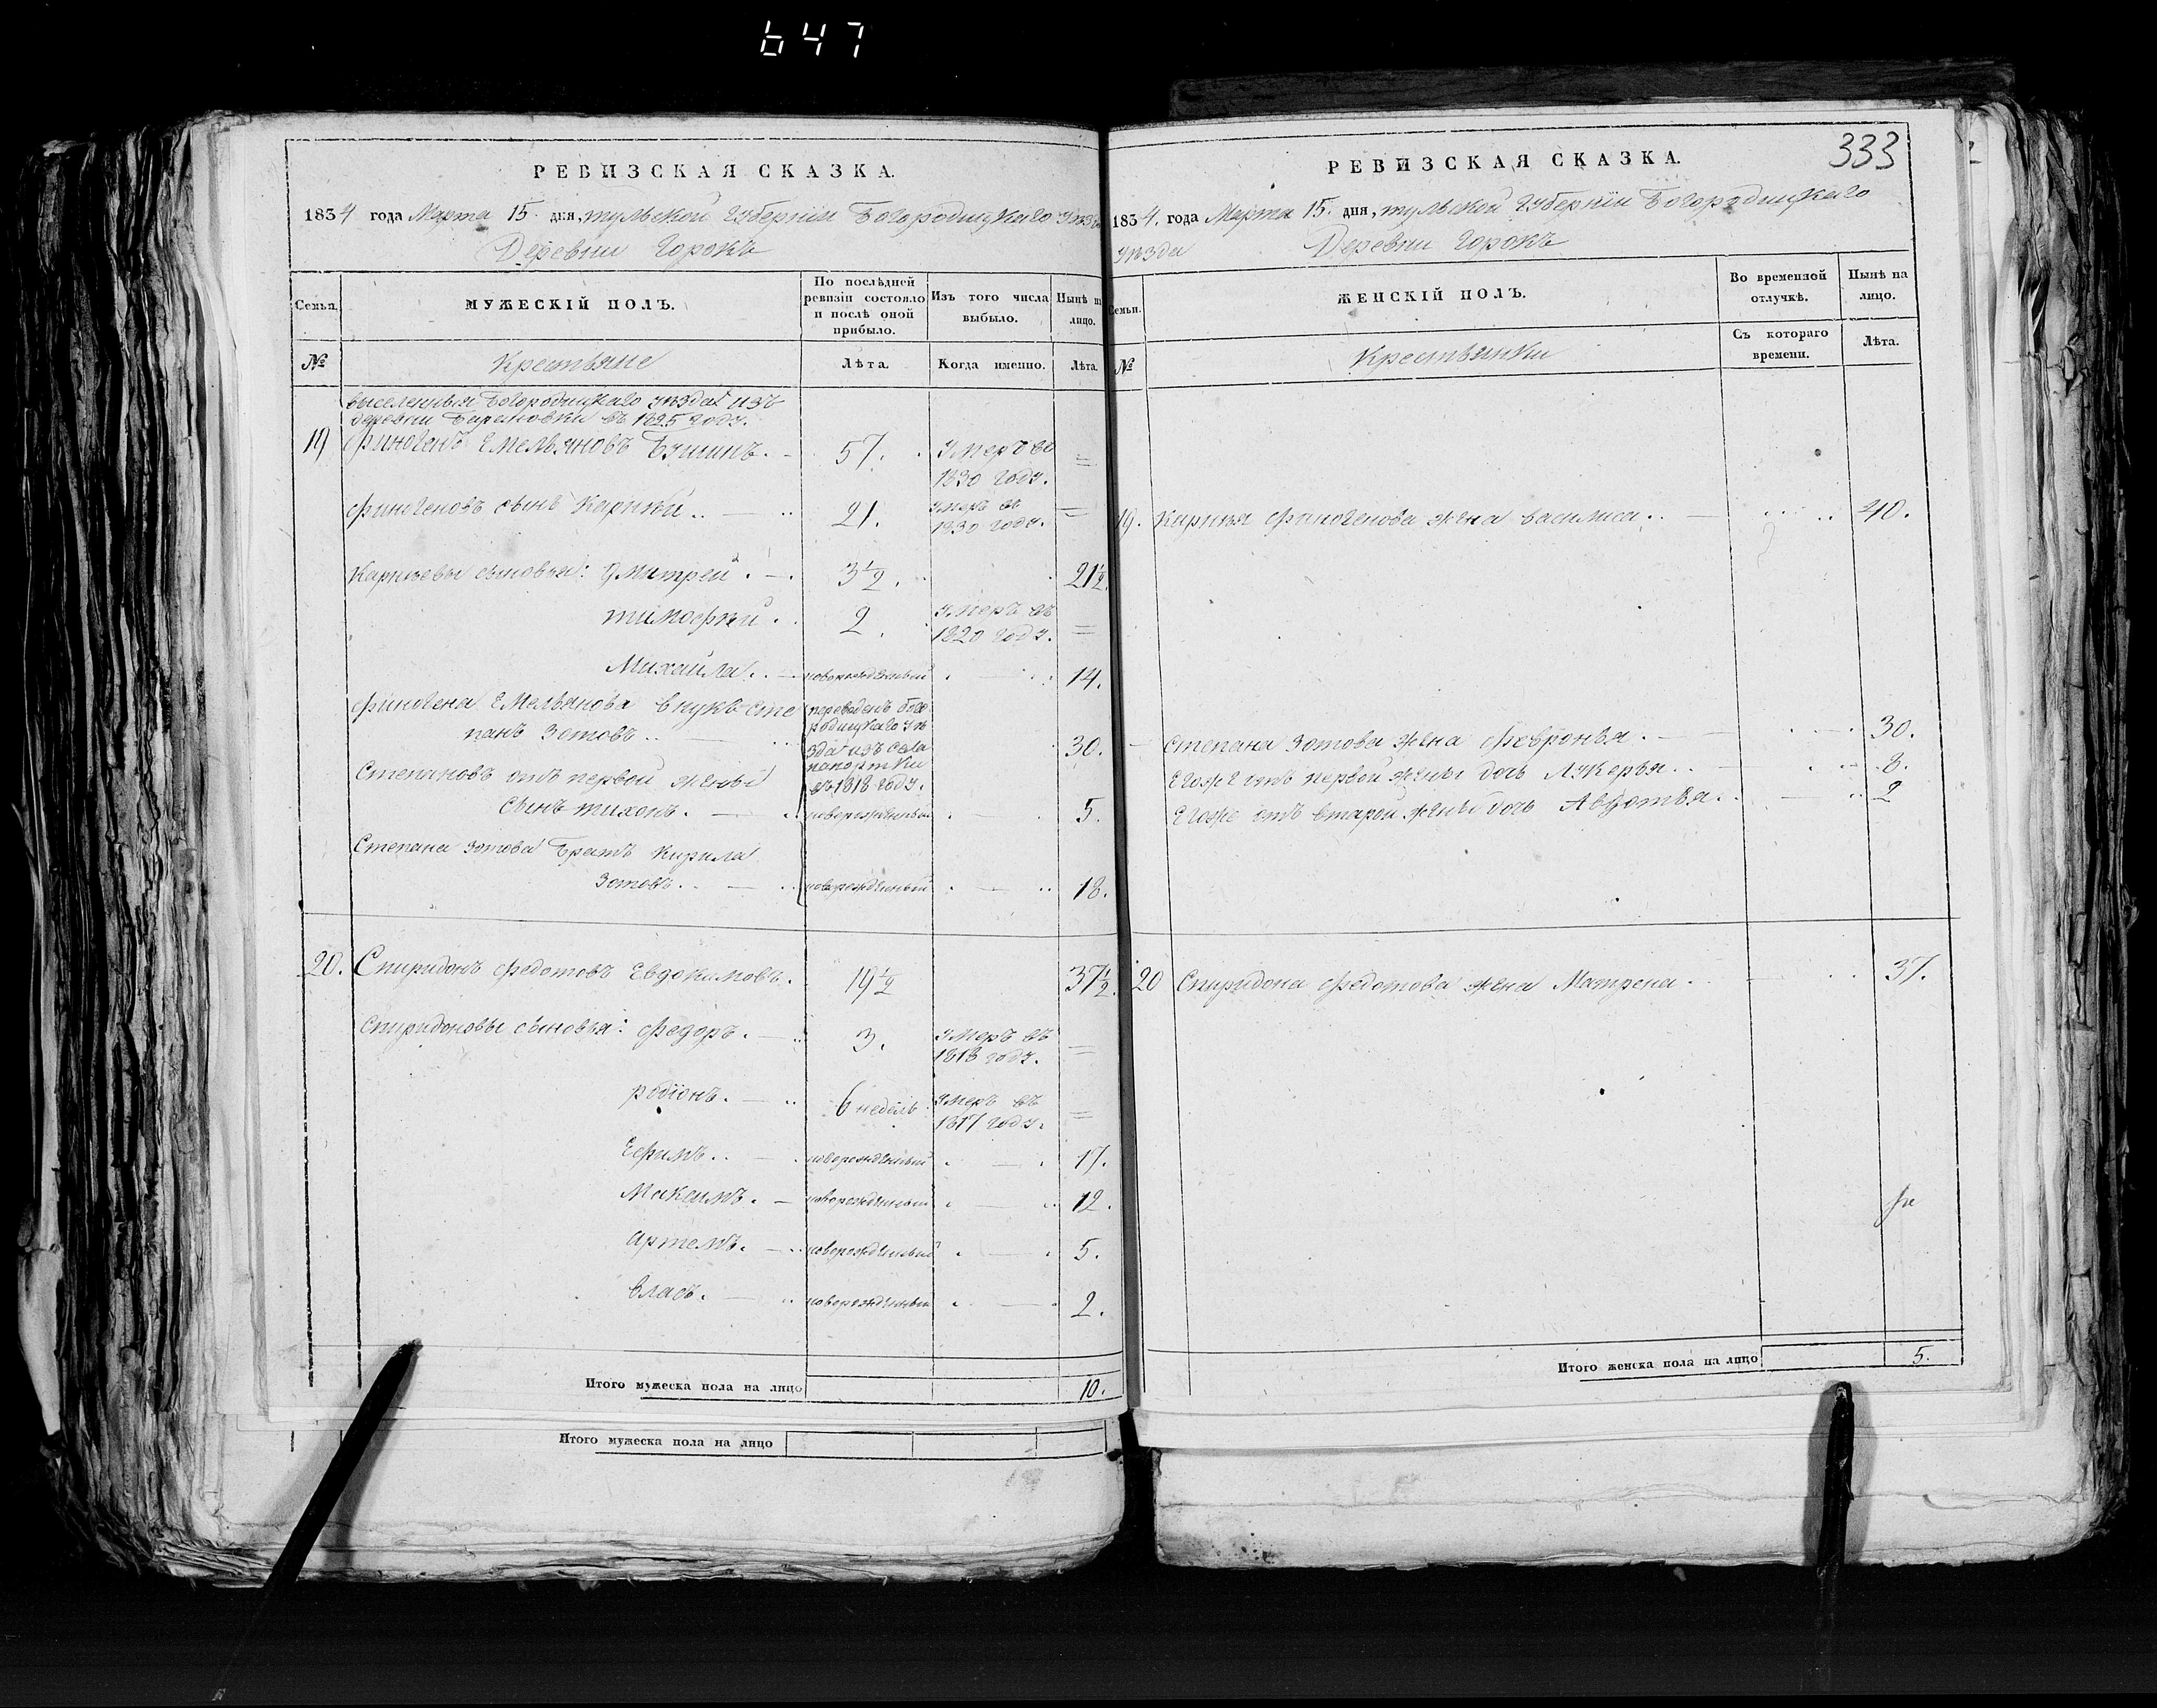 647
РЕВИЗСКАЯ СКАЗКА.
1834 года Марта 15. дня, тульской Губерніи Богородицкаго
Деревни Горокъ
Семьи.
МУЖЕСКІЙ ПОЛЪ.
По послѣдней ревизіи состояло и послѣ оной прибыло.
Изъ того числа выбыло.
Нынѣ на лицо.
№
Крестьяне
Лѣта.
Когда именно.
Лѣта.
выселенныя Богородицкаго уѣзда изъ
деревни въ 1825 году.
19 Финогенъ Емельяновъ 57. Умеръ въ 1830 году. =
Финогеновъ сынъ Карнѣй 21. умеръ въ 1830 году. =
Карнѣевы сыновья: Дмитрей 3½. 21½
тимофѣй 2. Умеръ въ 1820 году. =
Михайла новорожденный 14.
Финогена Емельянова внукъ Сте
панъ Зотовъ переведенъ Бого
родицкаго уѣ
зда изъ села
папортки
въ 1818 году. 30.
Степановъ отъ первой жены
сынъ тихонъ. новорожденный 5.
Степана Зотова братъ Кирила
Зотовъ новорожденный 18.
20. Спиридонъ Федотовъ Евдокимовъ. 19½ 37½
Спиридоновы сыновья: Федоръ. 3. Умеръ въ 1818 году. =
родіонъ. 6 недѣль Умеръ въ 1817 году. =
Ефимъ новорожденный 17.
Максимъ. новорожденный 12.
артемъ. новорожденный 5.
власъ. новорожденный 2.
Итого мужеска пола на лицо 10.
Итого мужеска пола на лицо
333
РЕВИЗСКАЯ СКАЗКА.
1834. года Марта 15. дня, тульской Губерніи Богородицкаго
уѣзда Деревни Горокъ
Семьи.
ЖЕНСКІЙ ПОЛЪ.
Во временной отлучкѣ.
Нынѣ на лицо.
№
Крестьянки
Съ котораго времени.
Лѣта.
19. Карнѣя Финогенова жена василиса 40.
Степана Зотова жена Февронья. 30.
Егоже отъ первой жены дочь Лукерья 8.
Егоже отъ второй жены дочь Авдотья. 2
20 Спиридона Федотова жена Матрена 37.
Итого женска пола на лицо 5.